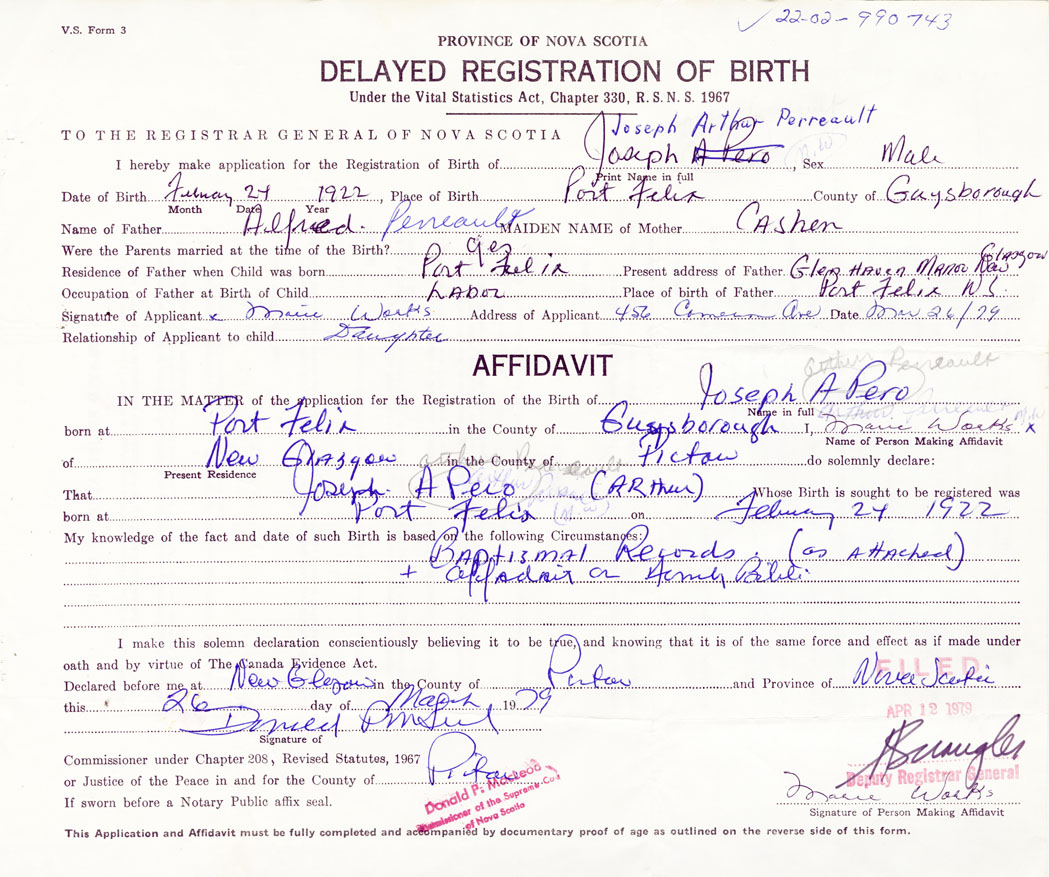 V.S. Form 3
✓ 22-02-990743
PROVINCE OF NOVA SCOTIA
DELAYED REGISTRATION OF BIRTH
Under the Vital Statistics Act, Chapter 330, R.S.N.S. 1967
Joseph Arthur Perreault
TO THE REGISTRAR GENERAL OF NOVA SCOTIA
I hereby make application for the Registration of Birth of Joseph A Pero M.W , Sex Male
Print Name in full
Date of Birth February 24 1922 , Place of Birth Port Felix County of Guysborough
Month Date Year
Name of Father Alfred. Perreault MAIDEN NAME of Mother CAShen
Were the Parents married at the time of the Birth? yes
Residence of Father when Child was born Port Felix Present address of Father Glen Haven Manor New Glasgow
Occupation of Father at Birth of Child LABOR Place of birth of Father Port Felix N.S.
Signature of Applicant x Marie Works Address of Applicant 456 Cameron Ave Date Mar 26/79
Relationship of Applicant to child Daughter
AFFIDAVIT
Arthur Perreault
IN THE MATTER of the application for the Registration of the Birth of Joseph A Pero
Name in full Arthur Perreault M.W
born at Port Felix in the County of Guysborough I, Marie Works x
Name of Person Making Affidavit
of New Glasgow in the County of Pictou do solemnly declare:
Present Residence Arthur Perreault
That Joseph. A Pero (ARthur) Whose Birth is sought to be registered was
born at Port Felix (M.W) on February 24 1922
My knowledge of the fact and date of such Birth is based on the following Circumstances:
BAPtismal Records. (as Attached)
+ Affadavit on Family Bible
I make this solemn declaration conscientiously believing it to be true, and knowing that it is of the same force and effect as if made under
oath and by virtue of The Canada Evidence Act.
Declared before me at New Glasgow in the County of Pictou and Province of Nova Scotia
FILED
this 26 day of March 1979
APR 12 1979
Signature of
Commissioner under Chapter 208, Revised Statutes, 1967
or Justice of the Peace in and for the County of Pictou
Deputy Registrar General
If sworn before a Notary Public affix seal.
Donald P. McLeod
Commissioner of the Supreme Court
of Nova Scotia
Marie Works
Signature of Person Making Affidavit
This Application and Affidavit must be fully completed and accompanied by documentary proof of age as outlined on the reverse side of this form.